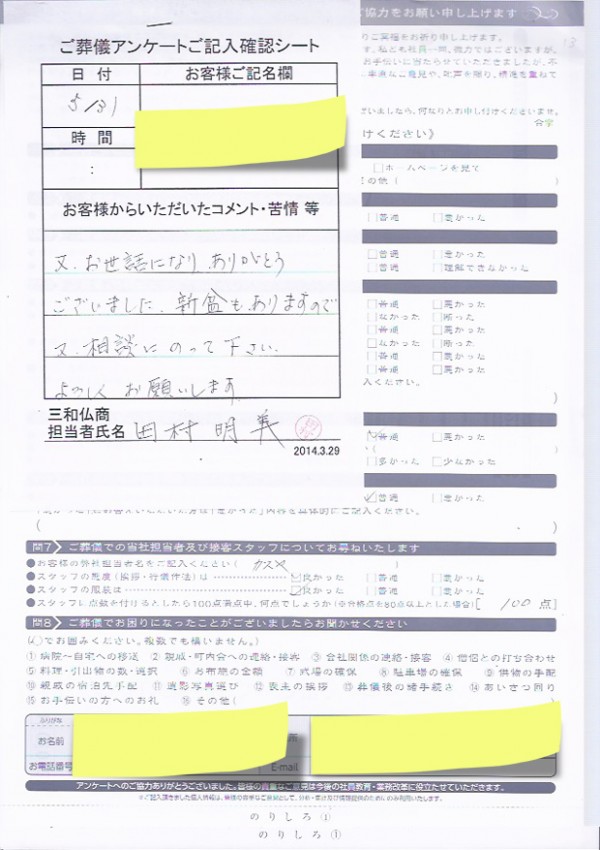 ご協力をお願い申し上げます
ご葬儀アンケートご記入確認シート
日付
お客様ご記名欄
5/31
時間
:
お客様からいただいたコメント・苦情 等
又、お世話になり ありがとう
ございました。新盆もありますので
又、相談にのって下さい。
よろしく お願いします
三和仏商
担当者氏名 田村 明義
2014.3.29
けください》
□ホームページを見て
の他 (
□普通 □悪かった
□普通 □悪かった
□普通 □理解できなかった
□普通 □悪かった
□なかった □困った
□普通 □悪かった
□なかった □困った
□普通 □悪かった
□普通 □悪かった
入ください。
☑普通 □悪かった
□多かった □少なかった
☑普通 □悪かった
問7 ご葬儀での当社担当者及び接客スタッフについてお尋ねいたします
●お客様の弊社担当者名をご記入ください (
●スタッフの態度 (挨拶・行儀作法) は ☑良かった □普通 □悪かった
●スタッフの服装は ☑良かった □普通 □悪かった
●スタッフに点数を付けるとしたら100点満点中、何点でしょうか (※合格点を80点以上とした場合) [ 100 点]
問8 ご葬儀でお困りになったことがございましたらお聞かせください
(○でお囲みください。複数でも構いません。)
①病院～自宅への移送 ②親戚・町内会への連絡・接客 ③会社関係の連絡・接客 ④僧侶との打ち合わせ
⑤料理・引出物の数・選択 ⑥お布施の金額 ⑦式場の確保 ⑧駐車場の確保 ⑨供物の手配
⑩親戚の宿泊先手配 ⑪遺影写真選び ⑫喪主の挨拶 ⑬葬儀後の諸手続き ⑭あいさつ回り
⑮お手伝いの方へのお礼 ⑯その他 (
ふりがな
お名前
お電話番号
E-mail
アンケートへのご協力ありがとうございました。皆様の貴重なご意見は今後の社員教育・業務改革に役立たせていただきます。
のりしろ①
のりしろ①